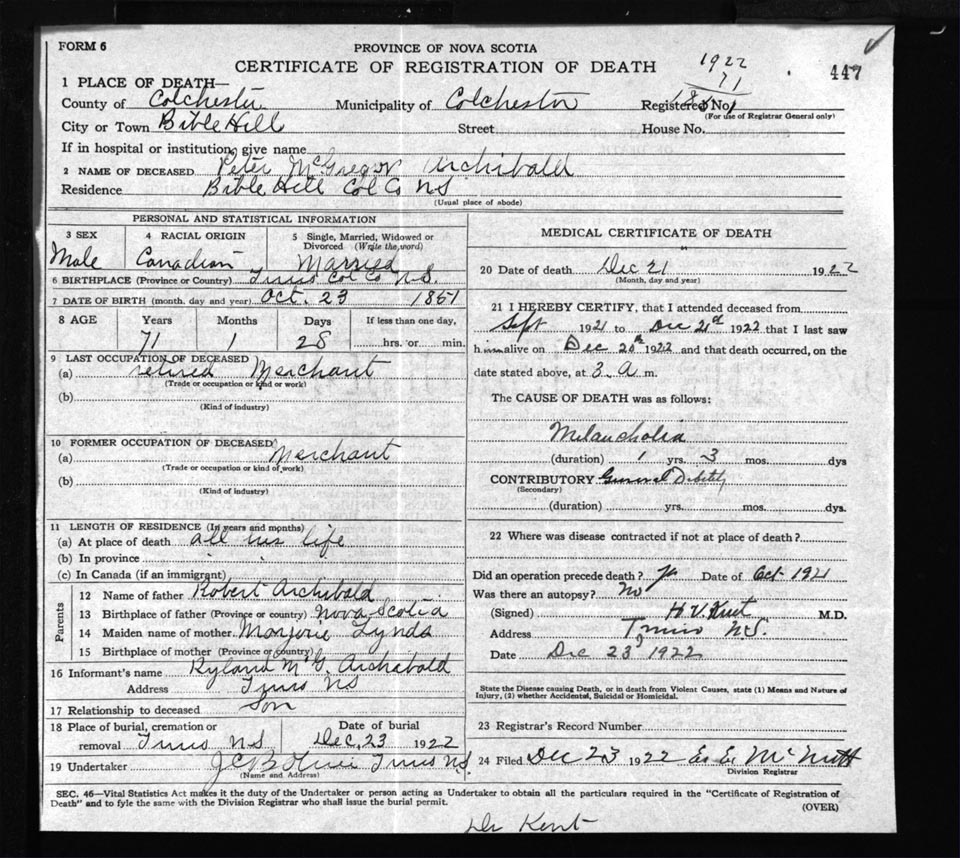 FORM 6
PROVINCE OF NOVA SCOTIA
CERTIFICATE OF REGISTRATION OF DEATH
1922
71
447
1 PLACE OF DEATH—
County of Colchester Municipality of Colchester Registered No.
(For use of Registrar General only)
City or Town Bible Hill Street House No.
If in hospital or institution, give name
2 NAME OF DECEASED Peter McGregor Archibald
Residence Bible Hill Col Co NS
(Usual place of abode)
PERSONAL AND STATISTICAL INFORMATION
3 SEX 4 RACIAL ORIGIN 5 Single, Married, Widowed or Divorced (Write the word)
Male Canadian Married
6 BIRTHPLACE (Province or Country) Truro Col Co N.S.
7 DATE OF BIRTH (month, day and year) Oct. 23 1851
8 AGE Years Months Days If less than one day,
71 1 28 hrs. or min.
9 LAST OCCUPATION OF DECEASED
(a) retired Merchant
(Trade or occupation or kind or work)
(b)
(Kind of industry)
10 FORMER OCCUPATION OF DECEASED
(a) Merchant
(Trade or occupation or kind of work)
(b)
(Kind of industry)
11 LENGTH OF RESIDENCE (In years and months)
(a) At place of death all his life
(b) In province
(c) In Canada (if an immigrant)
Parents
12 Name of father Robert Archibald
13 Birthplace of father (Province or country) Nova Scotia
14 Maiden name of mother Marjorie Lynds
15 Birthplace of mother (Province or country)
16 Informant's name Ryland McG. Archibald
Address Truro NS
17 Relationship to deceased Son
18 Place of burial, cremation or removal Truro NS Date of burial Dec. 23 1922
19 Undertaker Truro N.S.
(Name and Address)
MEDICAL CERTIFICATE OF DEATH
20 Date of death Dec 21 1922
(Month, day and year)
21 I HEREBY CERTIFY, that I attended deceased from
Sept 1921 to Dec 21st 1922 that I last saw
him alive on Dec 20th 1922 and that death occurred, on the
date stated above, at 3. a m.
The CAUSE OF DEATH was as follows:
Melancholia
(duration) 1 yrs. 3 mos. dys
CONTRIBUTORY General Debility
(Secondary)
(duration) yrs. mos. dys.
22 Where was disease contracted if not at place of death?
Did an operation precede death? Date of Oct 1921
Was there an autopsy? No
(Signed) H V. Kent M.D.
Address Truro N.S.
Date Dec 23 1922
State the Disease causing Death, or in death from Violent Causes, state (1) Means and Nature of
Injury, (2) whether Accidental, Suicidal or Homicidal.
23 Registrar's Record Number
24 Filed Dec 23 1922 E. McNutt
Division Registrar
SEC. 46—Vital Statistics Act makes it the duty of the Undertaker or person acting as Undertaker to obtain all the particulars required in the "Certificate of Registration of
Death" and to fyle the same with the Division Registrar who shall issue the burial permit.
(OVER)
Dr Kent